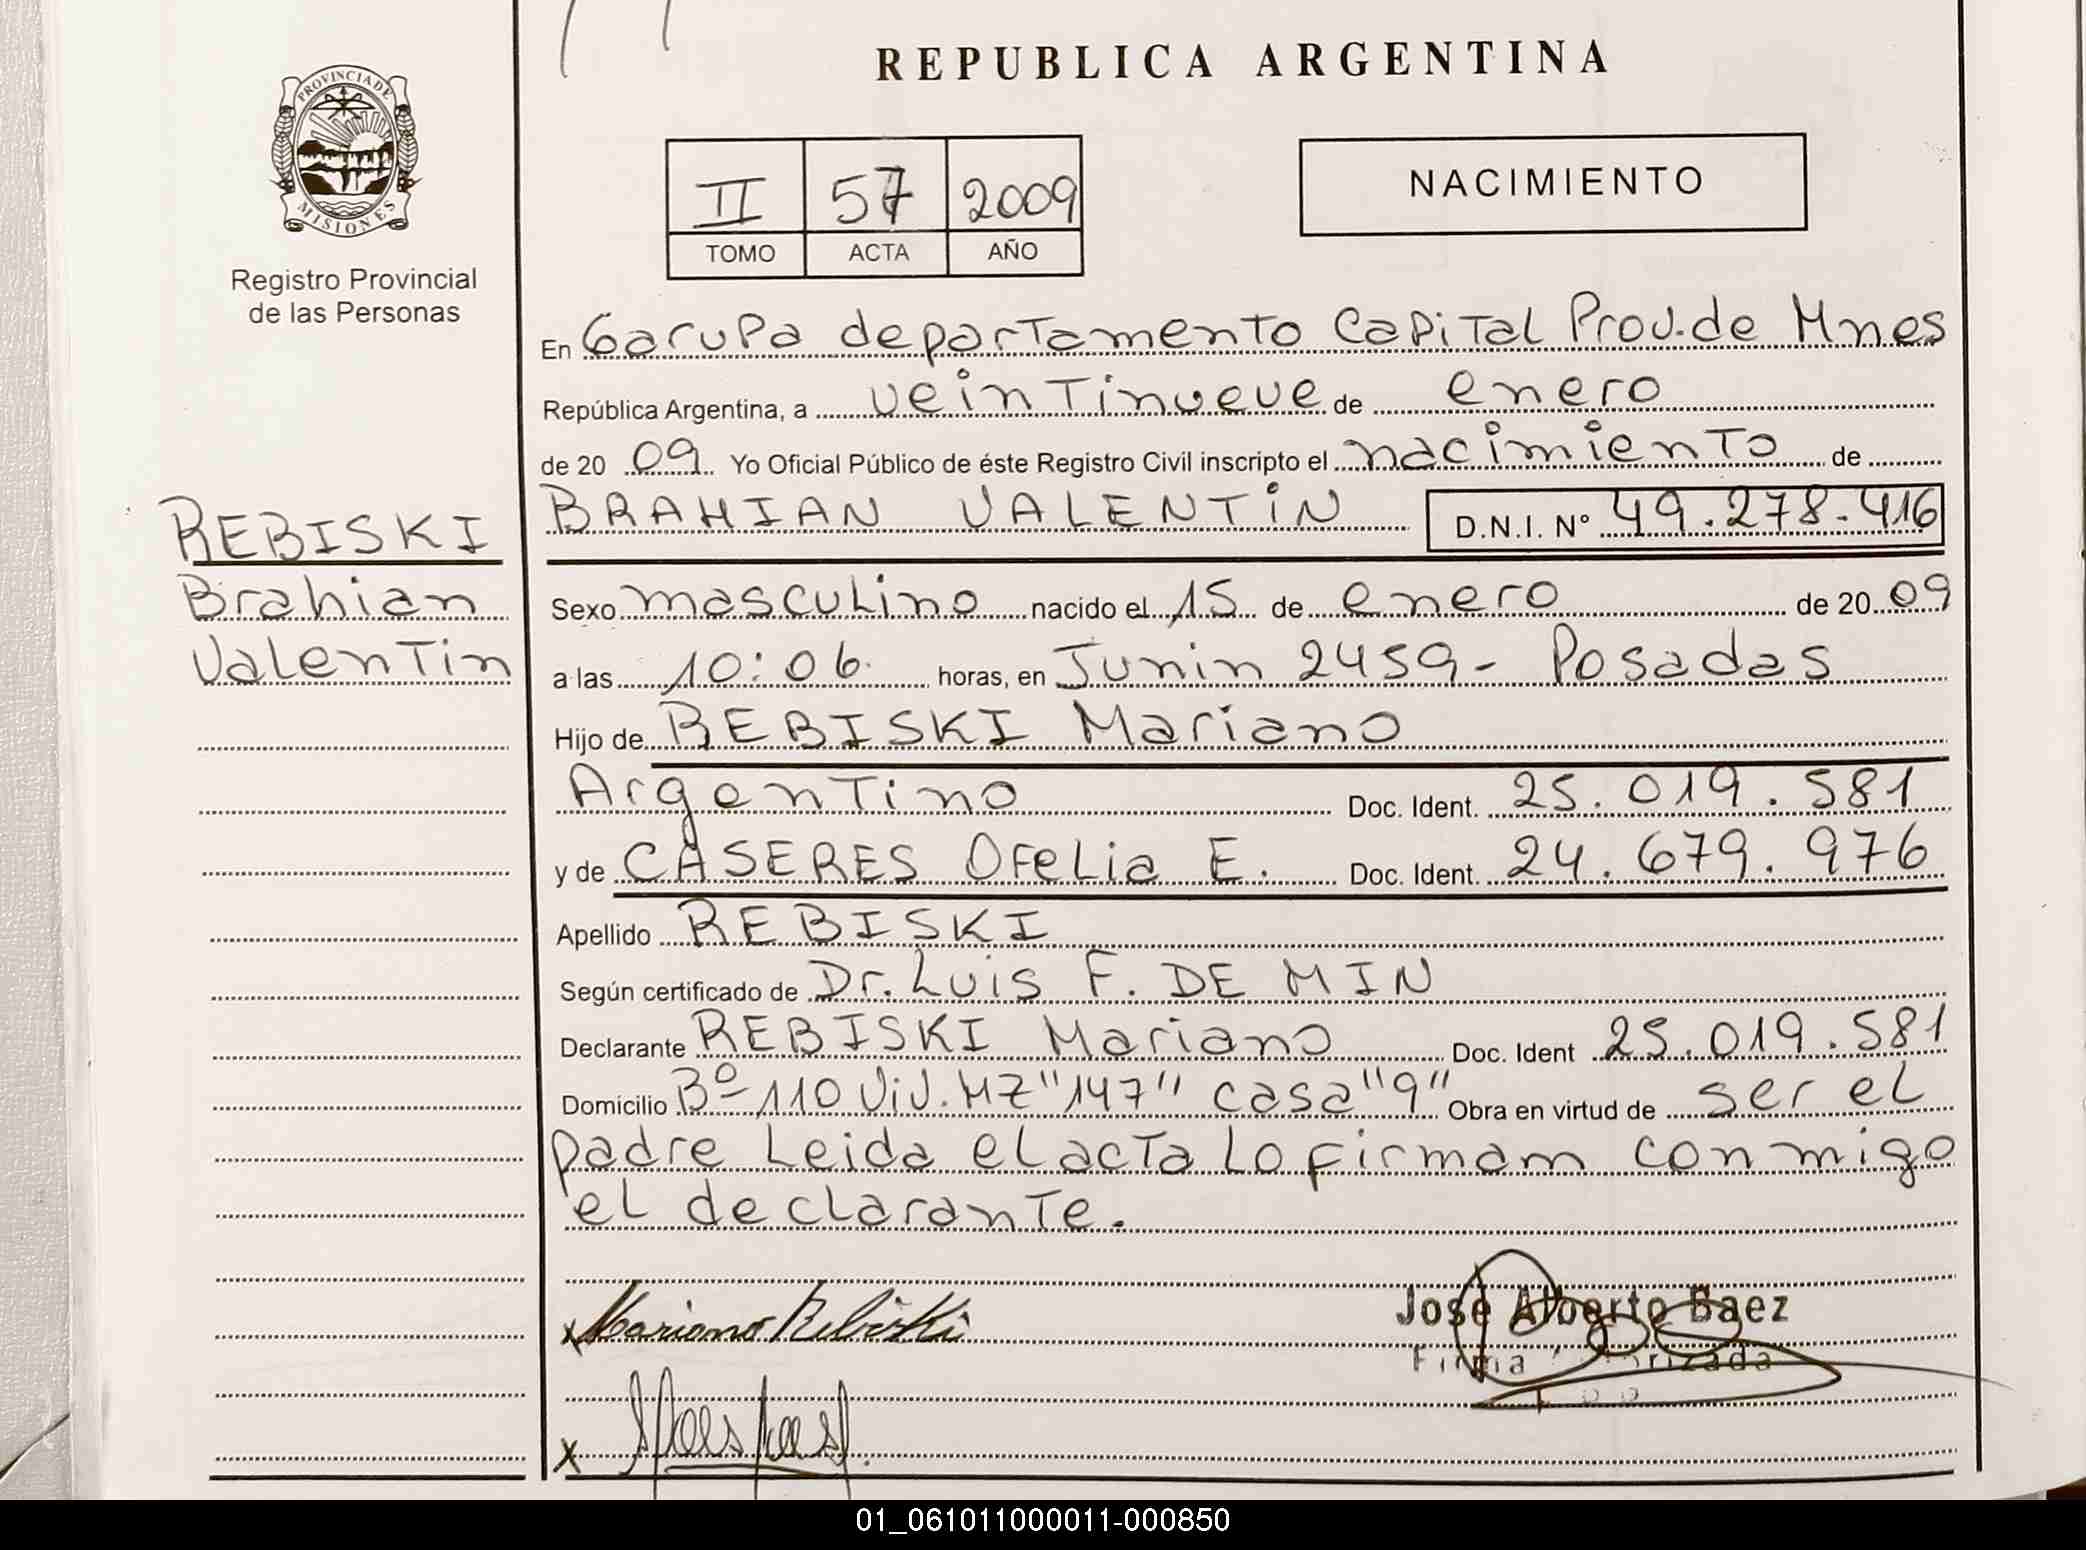 REPUBLICA ARGENTINA
PROVINCIA DE
MISIONES
Registro Provincial
de las Personas
II 57 2009
TOMO ACTA AÑO
NACIMIENTO
En Garupa departamento Capital Prov. de Mnes
República Argentina, a veintinueve de enero
de 20 09 Yo Oficial Público de éste Registro Civil inscripto el nacimiento de
BRAHIAN VALENTIN D.N.I. Nº 49.278.416
REBISKI
Brahian
Valentin
Sexo masculino nacido el 15 de enero de 20 09
a las 10:06 horas, en Junin 2459 - Posadas
Hijo de REBISKI Mariano
Argentino Doc. Ident. 25.019.581
y de CASERES Ofelia E. Doc. Ident. 24.679.976
Apellido REBISKI
Según certificado de Dr. Luis F. DE MIN
Declarante REBISKI Mariano Doc. Ident 25.019.581
Domicilio Bº 110 Viv. MZ "147" casa "9" Obra en virtud de ser el
padre Leida el acta lo firmam conmigo
el declarante.
x Mariano Rebiski
Jose Alberto Baez
Firma
x
01_061011000011-000850